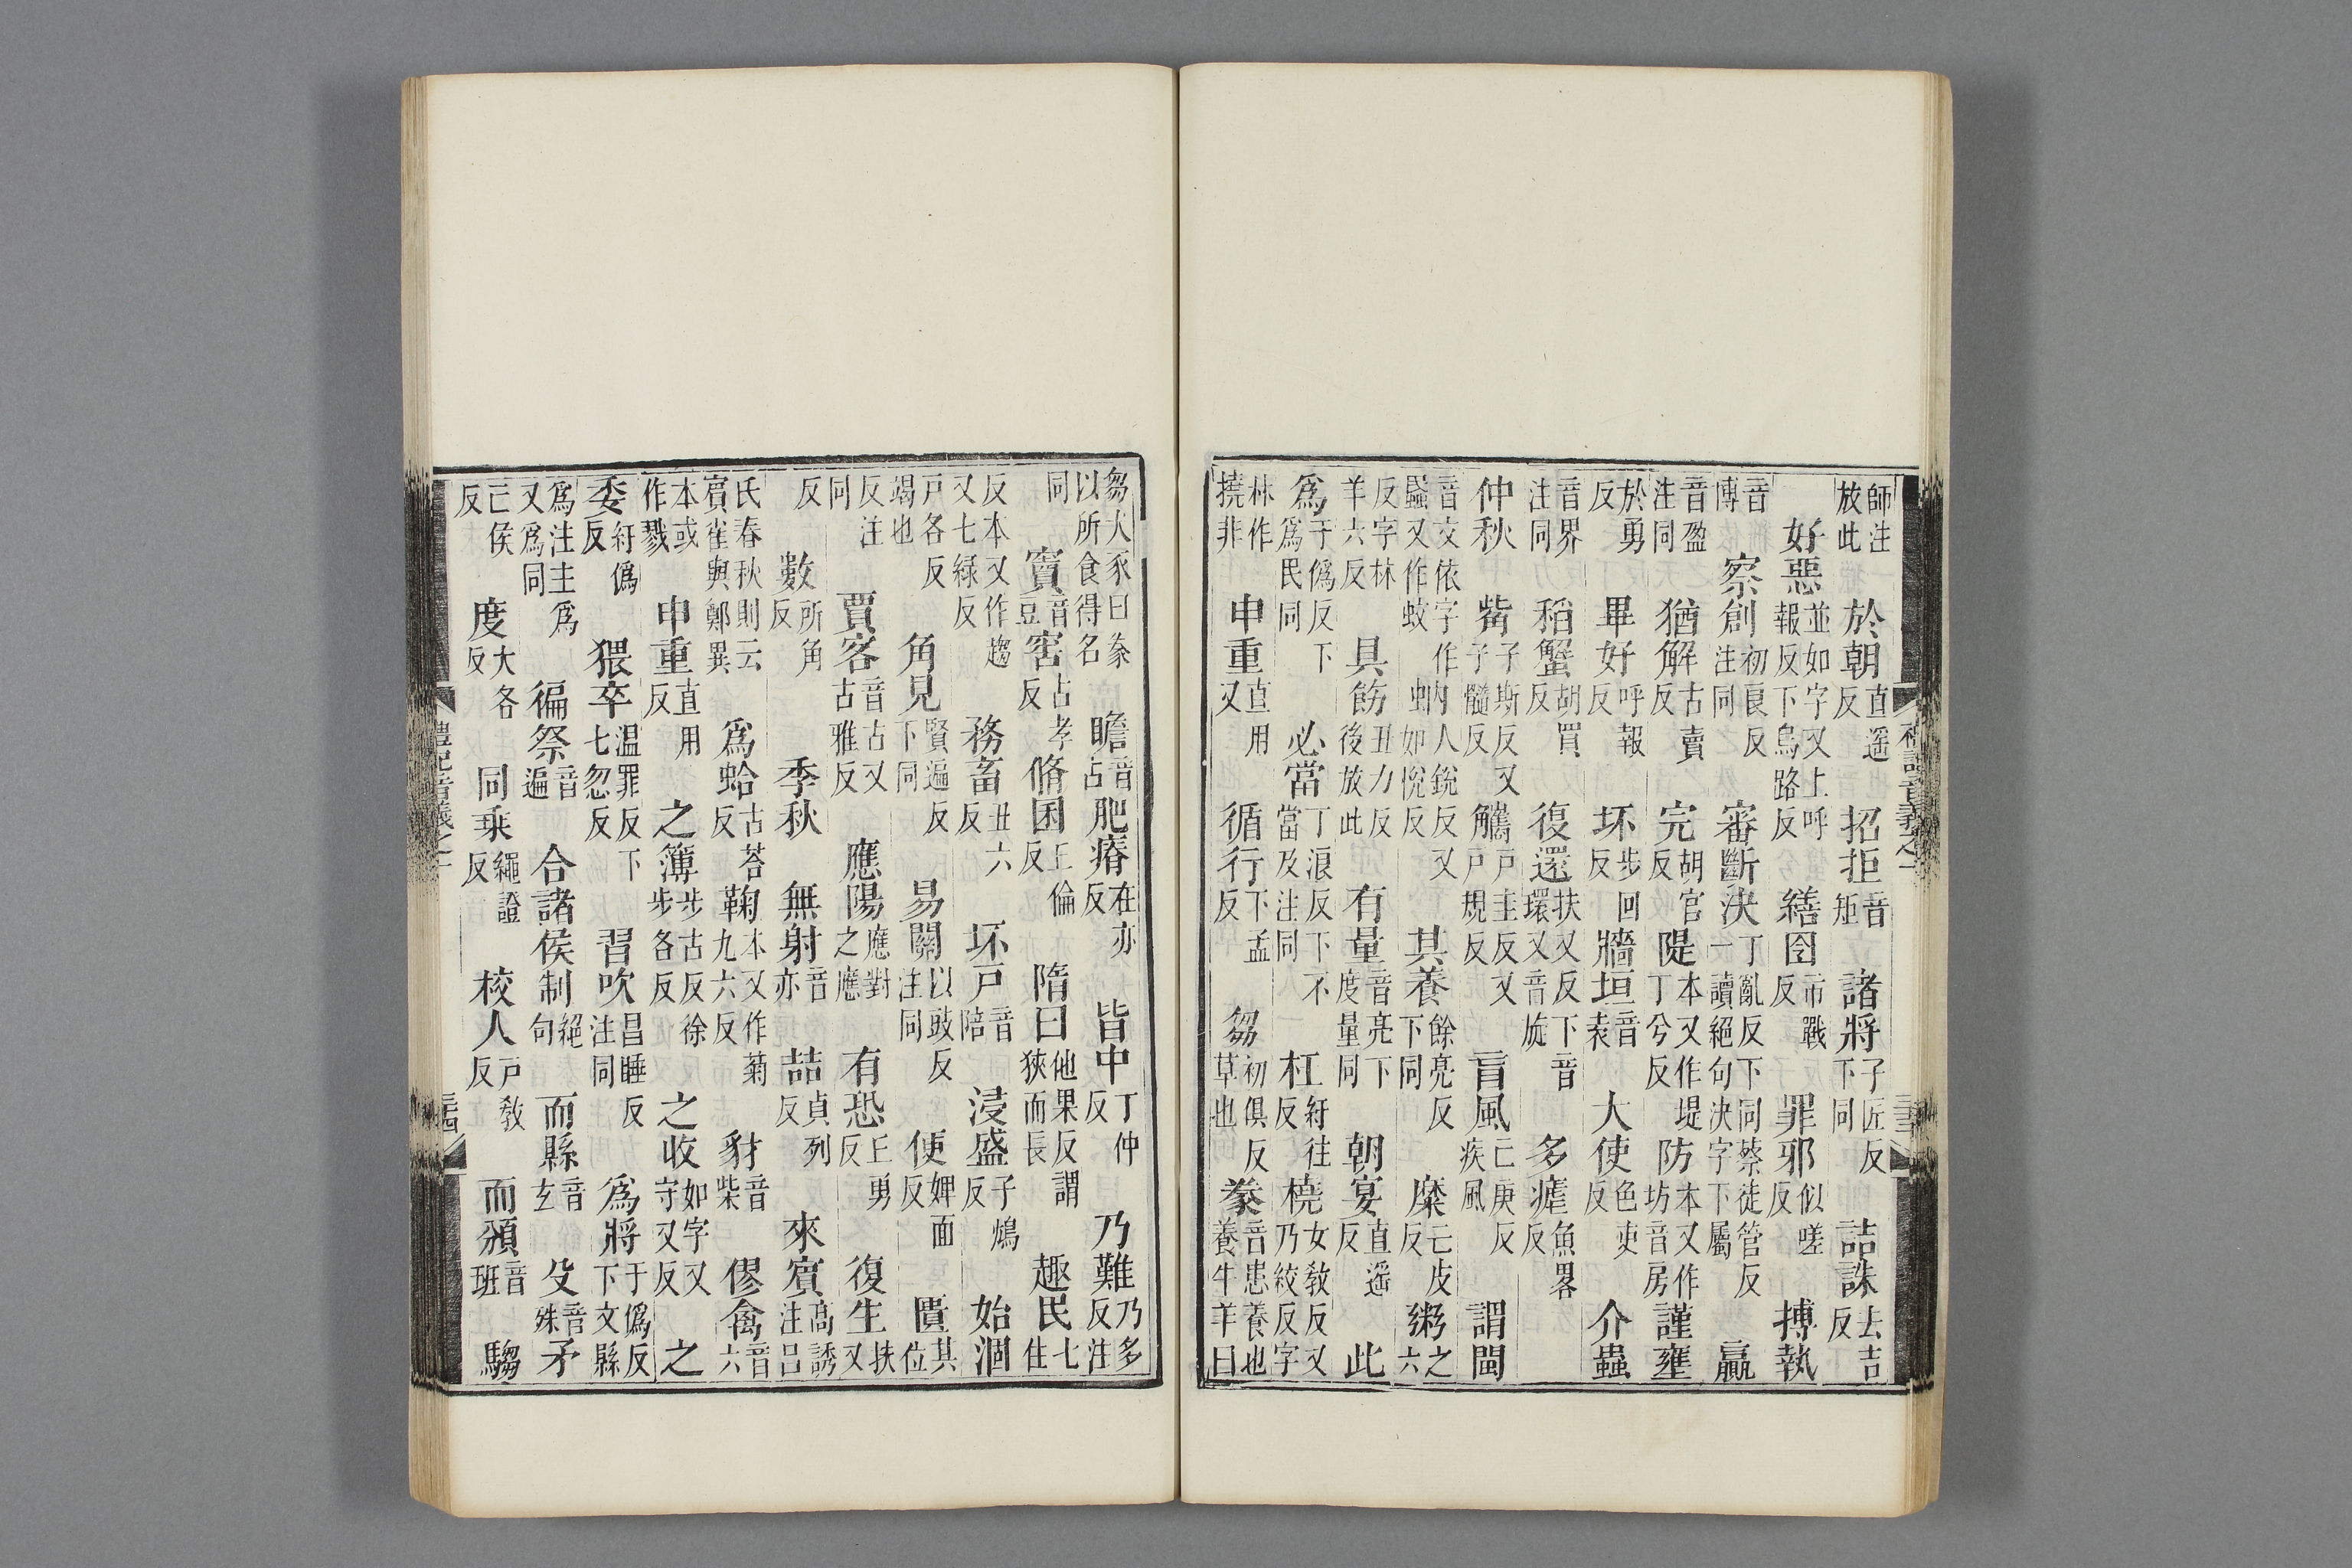 師注放此 於朝直遥反 招拒音矩 諸將子匠反下同 詰誅去吉反
好惡並如字又上呼報反下烏路反 繕囹市戰反 罪邪似嗟反 搏執
音博 察創初良反注同 審斷決丁亂反下同蔡徒管反一讀絕句決字下屬 贏
音盈注同 猶解古賣反 完胡官反 隄本又作堤丁兮反 防本又作坊音房 謹壅
於勇反 畢好呼報反 坏步回反 牆垣音袁 大使色吏反 介蟲
音界注同 稻蟹胡買反 復還扶又反下音環又音旋 多瘧魚畧反
仲秋 觜子斯反又子髓反 觿戶圭反又戶規反 盲風亡庚反疾風 謂閩
音文依字作䖟又作蚊 蚋人銳反又如悅反 其養餘亮反下同 糜亡皮反 粥之六
反字林羊六反 具飭丑力反後放此 有量音亮下度量同 朝宴直遥反 此
爲于僞反下爲民同 必當丁浪反下不當及注同 枉紆往反 橈女敎反又乃絞反字
林作撓非 申重直用又 循行下孟反 芻初俱反草也 豢音患養也養牛羊曰
芻犬豕曰豢以所食得名 瞻音占 肥瘠在亦反 皆中丁仲反 乃難乃多反注
同 竇音豆 窖古孝反 脩囷丘倫反 隋曰他果反謂狹而長 趣民七住
反本又作趨又七緑反 務畜丑六反 坏戶音陪 浸盛子鴆反 始涸
戶各反竭也 角見賢遍反下同 易關以豉反注同 便婢面反 匱其位
反注同 賈客音古又古雅反 應陽應對之應 有恐丘勇反 復生扶又
反 數所角反 季秋 無射音亦 喆貞列反 來賔高誘注吕
氏春秋則云賔雀與鄭異 爲蛤古荅反 鞠本又作菊九六反 豺音柴 僇禽音六
本或作戮 申重直用反 之簿步古反徐步各反 之收如字又守又反 之
委紆僞反 猥卒温罪反下七忽反 習吹昌睡反注同 爲將于僞反下文縣
爲注主爲又爲同 徧祭音遍 合諸侯制絕句 而縣音玄 殳音殊 矛
亡侯反 度大各反 同乘繩證反 校人戶敎反 而頒音班 騶